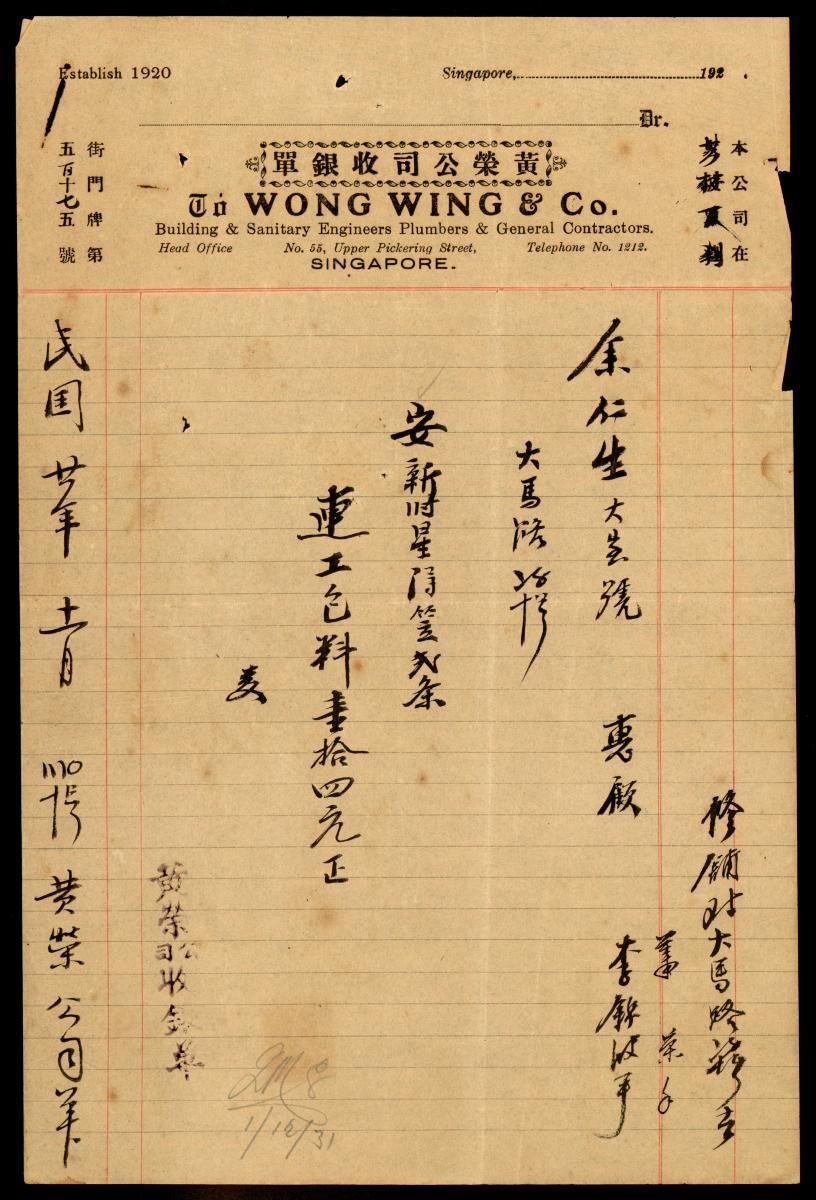 Establish 1920
Singapore, 192 .
Dr.
街門牌第
五百十七五號
黃榮公司收銀單
To WONG WING & Co.
Building & Sanitary Engineers Plumbers & General Contractors.
Head Office No. 55, Upper Pickering Street, Telephone No. 1212.
SINGAPORE.
本公司在
余仁生大宝號 惠顧
大馬路
安新旧星
連工包料壹拾四元正
民国廿年 十一月 黄榮公司单
黄榮公司收銀单
修鋪 大馬路
李錦波
1/12/31